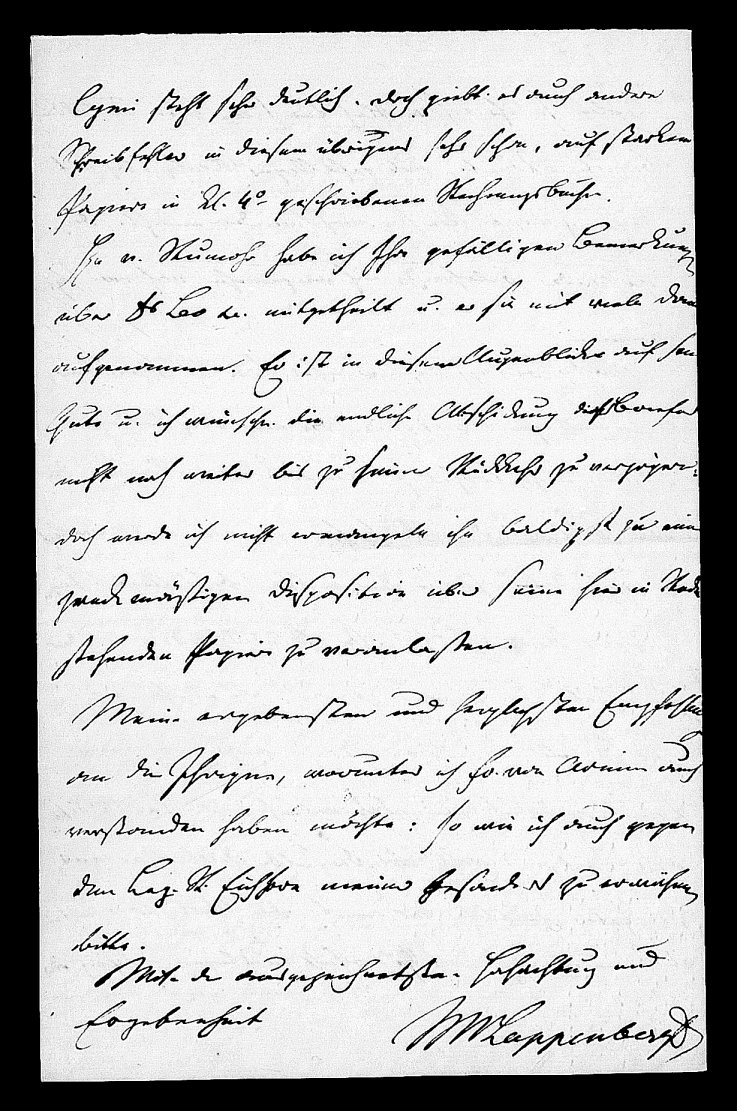 Cymi steht sehr deutlich. doch giebt es auch andere
Schreibfehler in diesem übrigens sehr schön, auf starkem
Papiere in kl. 4° geschriebenen Rechnungsbuche.
Hn v. Rumohr habe ich Ihre gefälligen Bemerkungen
über Leo mitgetheilt u. er sie mit vielem Dank
aufgenommen. Er ist in diesem Augenblicke auf sein
Gute u. ich wünsche die endliche Absendung dieses Briefes
nicht noch weiter bis zu seiner Rückkehr zu verzögern:
doch werde ich nicht ermangeln ihn baldigst zu einer
zweckmäßigen Disposition über seine hier in Rede
stehenden Papiere zu veranlassen.
Meine ergebensten und herzlichsten Empfehlung
an die Ihrigen, worunter ich Fr. von Arnim auch
verstanden haben möchte: so wie ich auch gegen
den Leg. R. Eichhorn meiner besonders zu erwähnen
bitte.
Mit der ausgezeichnetsten Hochachtung und
Ergebenheit
Lappenberg D